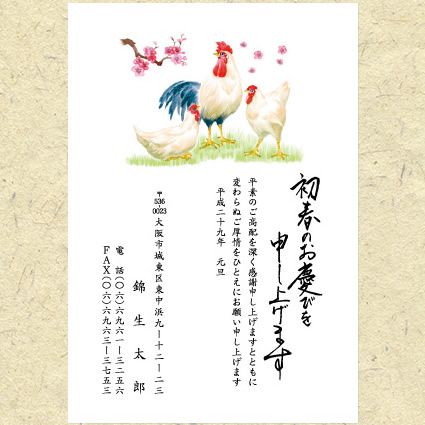 初春のお慶びを
申し上げます
平素のご高配を深く感謝申し上げますとともに
変わらぬご厚情をひとえにお願い申し上げます
平成二十九年 元旦
〒536-0023
大阪市城東区東中浜九ー十二ー二三
錦生太郎
電話(〇六)六九六一ー三二五六
FAX(〇六)六九六三ー三七五三